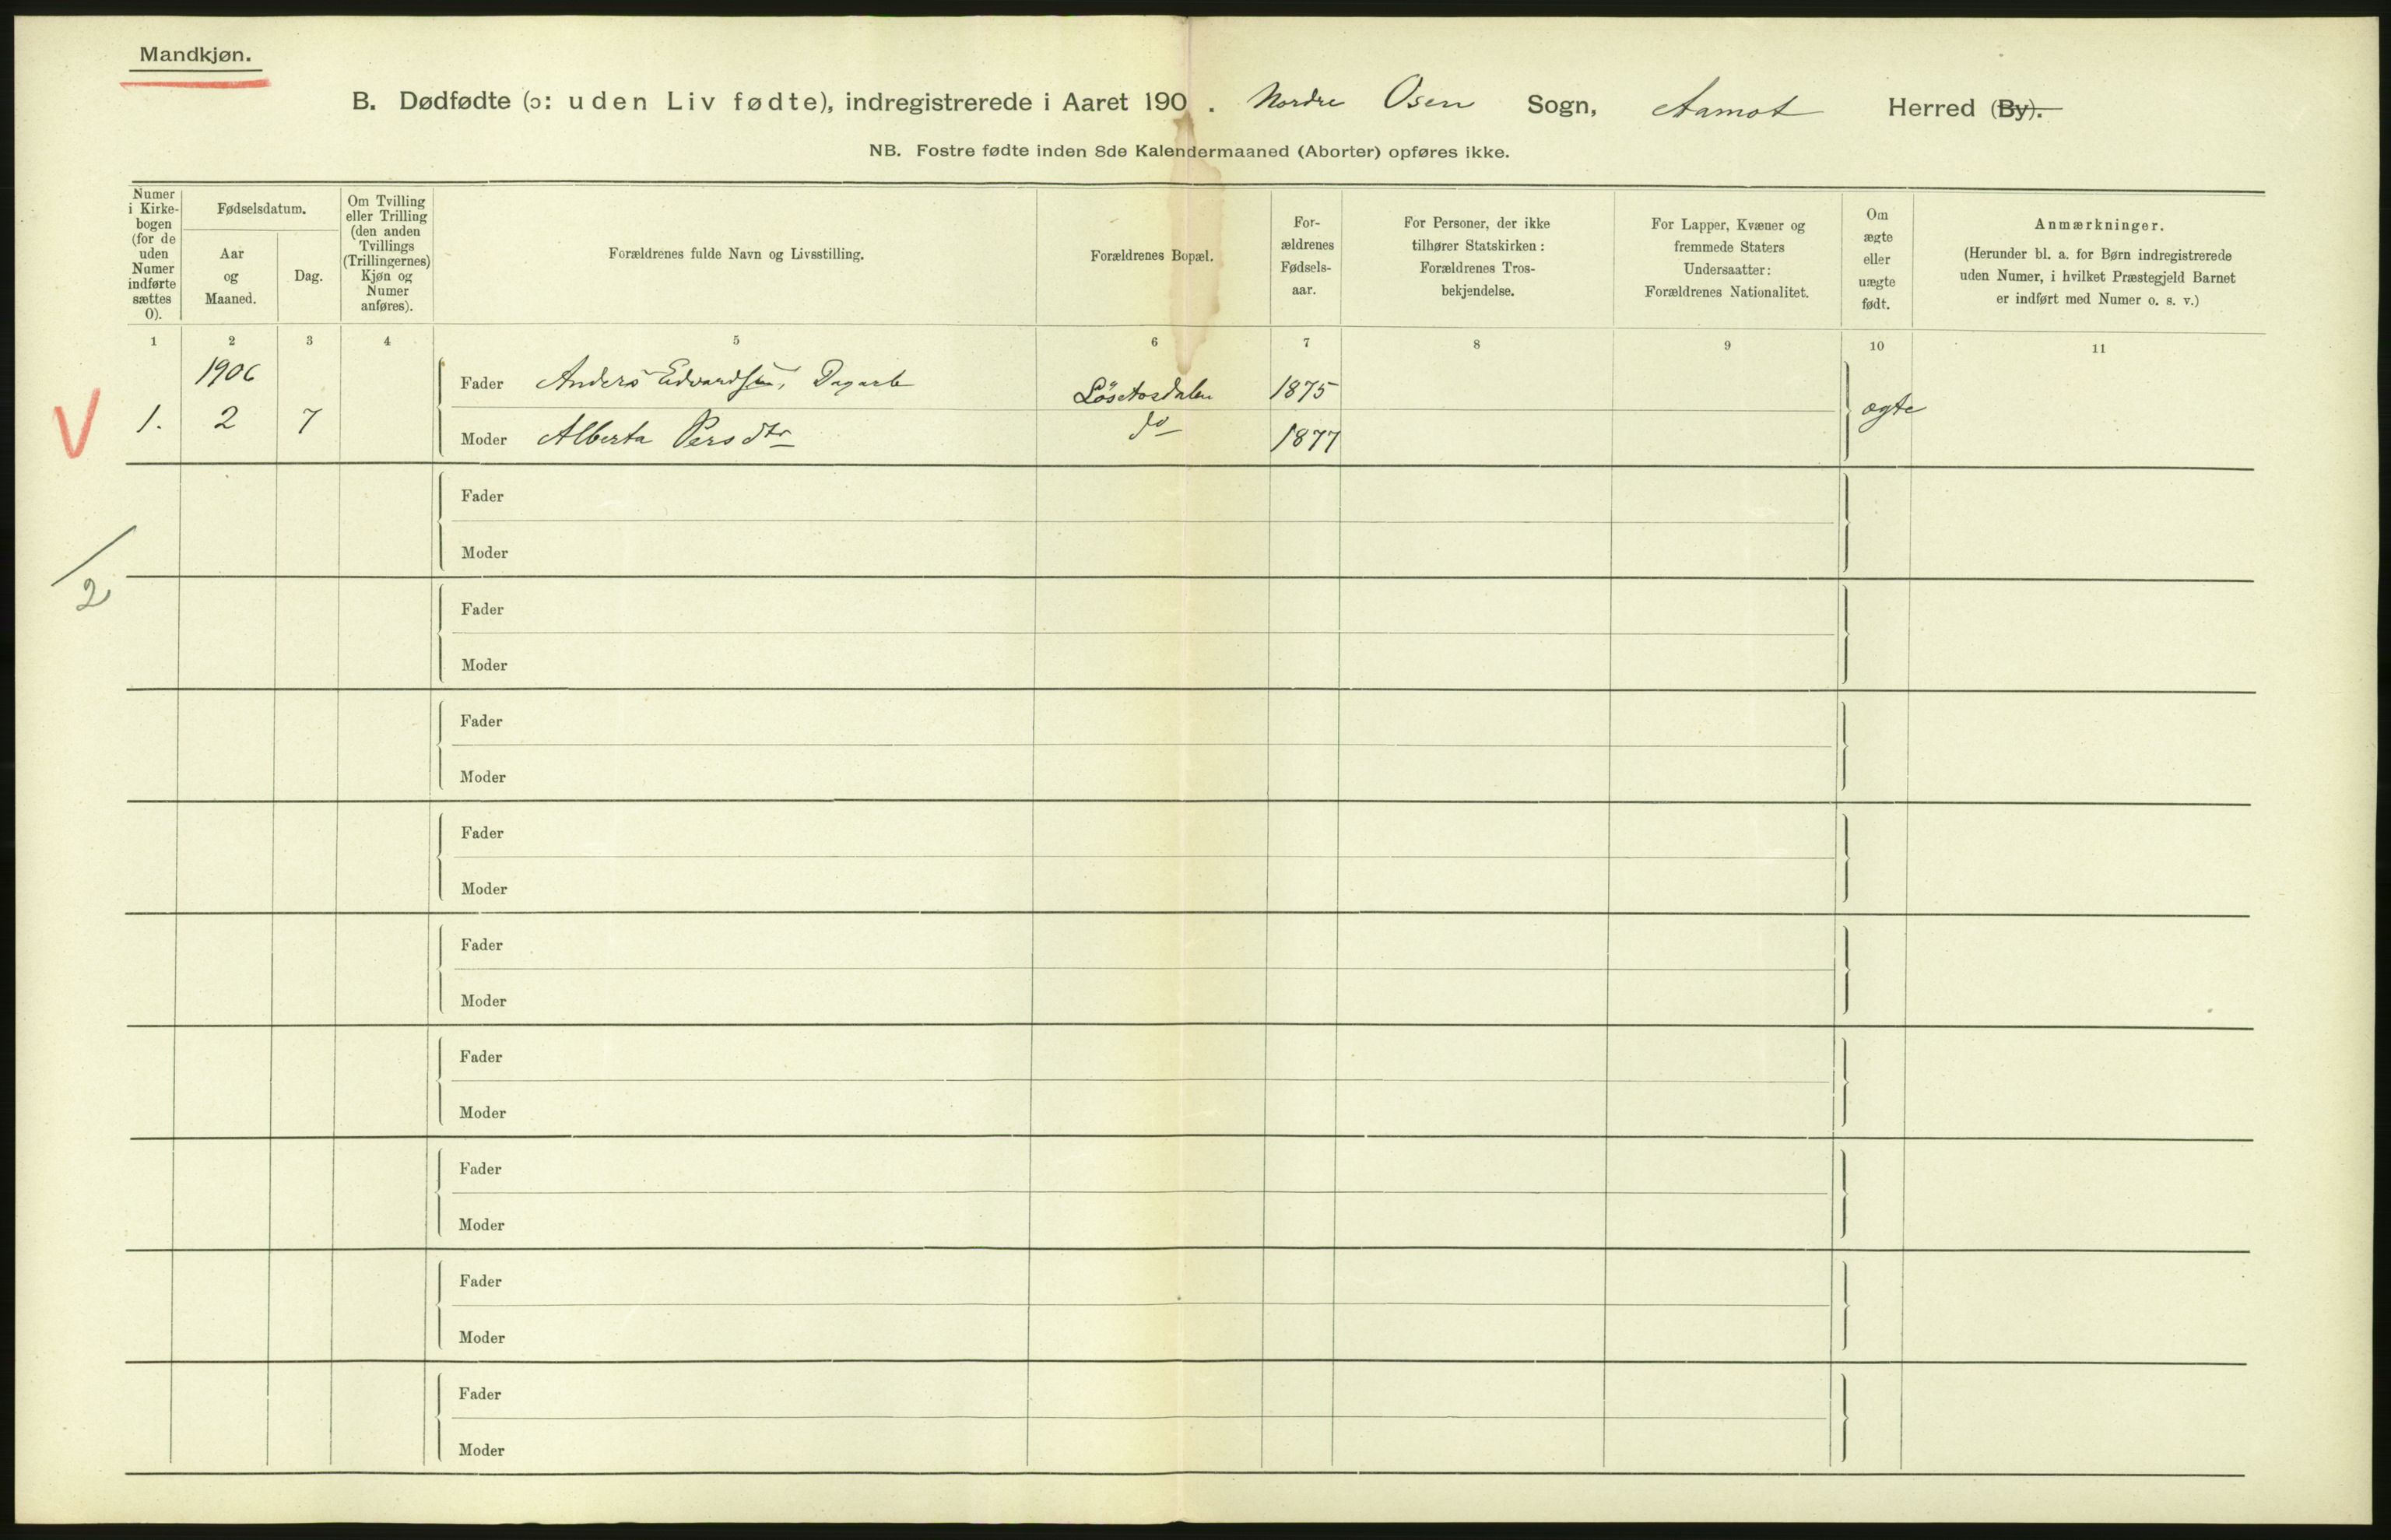 Mandkjøn.
B. Dødfødte (ɔ: uden Liv fødte), indregistrerede i Aaret 190 . Nordre Osen Sogn, Aamot Herred (By).
NB. Fostre fødte inden 8de Kalendermaaned (Aborter) opføres ikke.
Numer
i Kirke-
bogen
(for de
uden
Numer
indførte
sættes
0).
Fødselsdatum.
Aar
og
Maaned.
Dag.
Om Tvilling
eller Trilling
(den anden
Tvillings
(Trillingernes)
Kjøn og
Numer
anføres).
Forældrenes fulde Navn og Livsstilling.
Forældrenes Bopæl.
For-
ældrenes
Fødsels-
aar.
For Personer, der ikke
tilhører Statskirken:
Forældrenes Tros-
bekjendelse.
For Lapper, Kvæner og
fremmede Staters
Undersaatter:
Forældrenes Nationalitet.
Om
ægte
eller
uægte
født.
Anmærkninger.
(Herunder bl. a. for Børn indregistrerede
uden Numer, i hvilket Præstegjeld Barnet
er indført med Numer o. s. v.)
1 2 3 4 5 6 7 8 9 10 11
1906
Fader Anders Edvardsen, Dagarb 1875
V 1. 2 7 ægte
Moder Alberta Persdtr do 1877
Fader
Moder
2
Fader
Moder
Fader
Moder
Fader
Moder
Fader
Moder
Fader
Moder
Fader
Moder
Fader
Moder
Fader
Moder